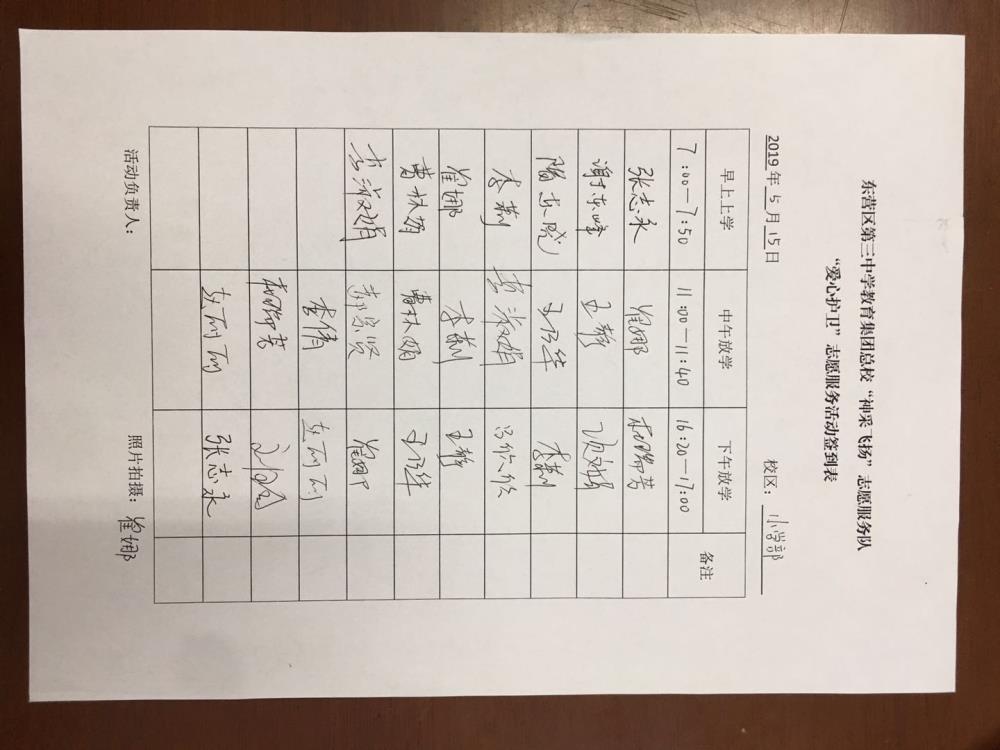 东营区第三中学教育集团总校“神采飞扬”志愿服务队
“爱心护卫”志愿服务活动签到表
2019年5月15日 校区：小学部
早上上学 中午放学 下午放学 备注
7:00—7:50 11:00—11:40 16:20—17:00
张志永 崔娜
谢东峰 王静
王乃华 李莉
李莉 李淑娟
崔娜 李莉 王静
曹林娟 曹林娟 王乃华
李淑娟 崔娜
李倩 赵丽丽
赵丽丽 张志永
活动负责人： 照片拍摄：崔娜